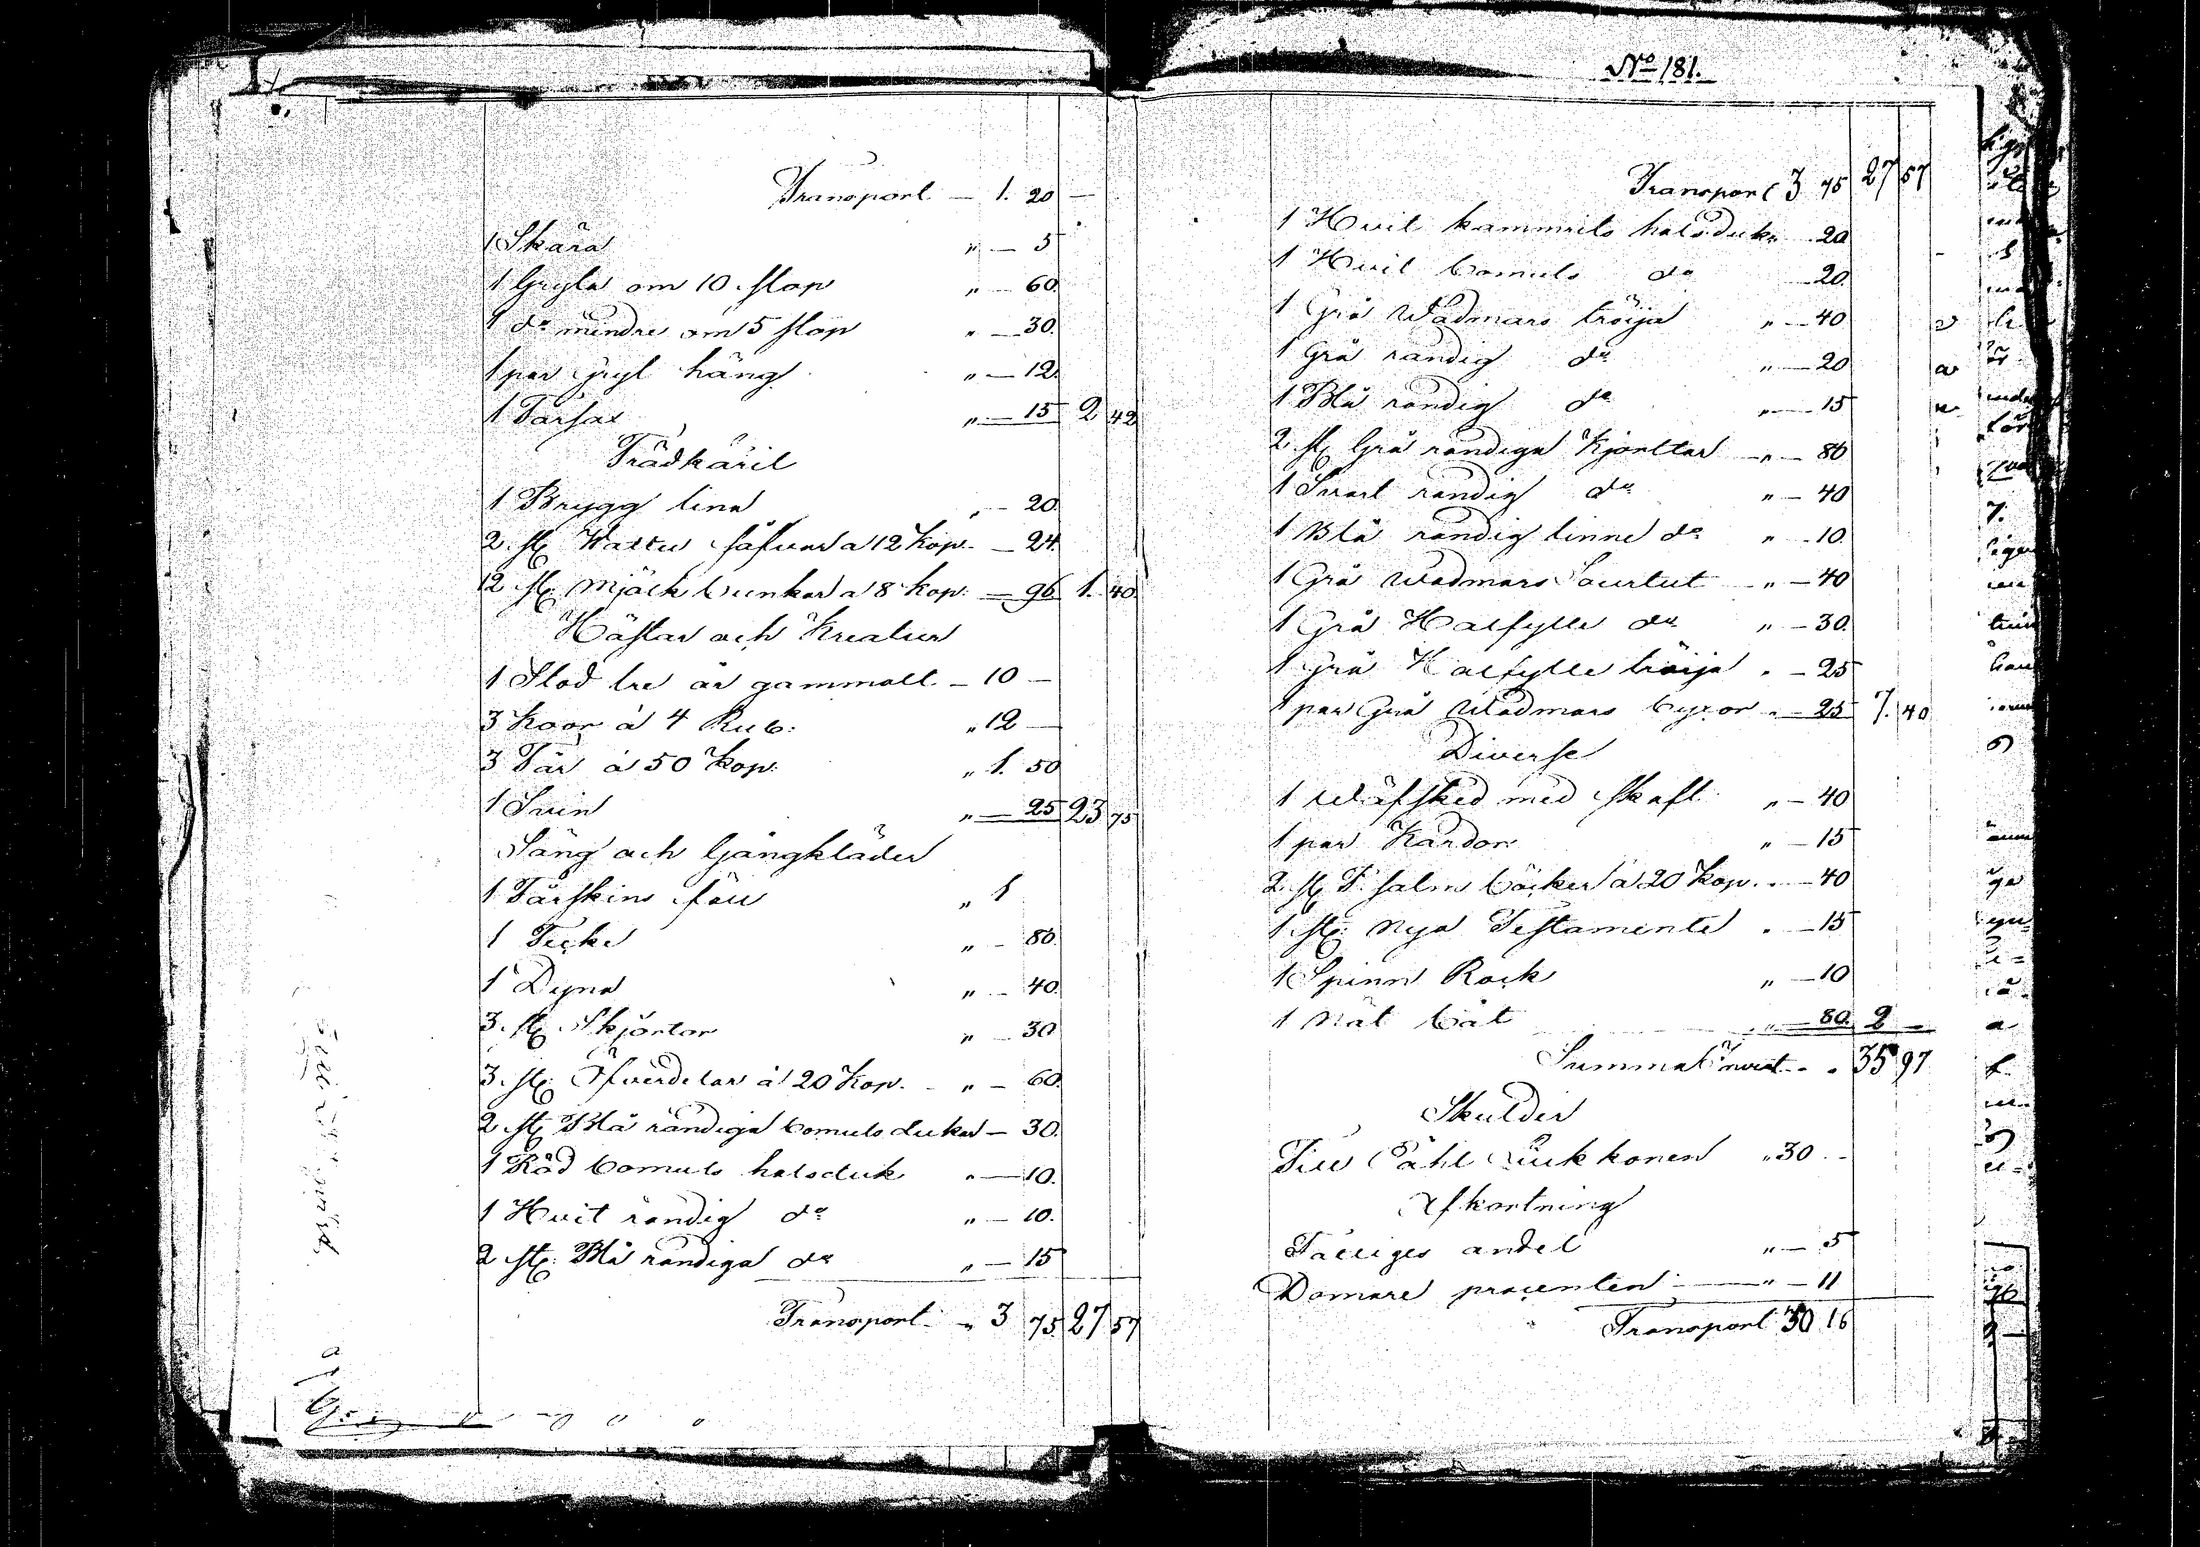 Transport — 1. 20 —
1 Skära " — 5
1 Gryta om 10 stop " — 60.
1 do mindre om 5 stop " — 30.
1 par gryt häng " — 12.
1 Fårsax " — 15 2 42
Trädkäril
1 Brygg tina " — 20.
2 st. Wattu såfvar a 12 Kop. — 24.
12 st. Mjölk bunkar a 8 Kop. — 96 1. 40
Hästar och Kreatur
1 Stod tre år gammall — 10 —
3 Koor á 4 Rub: " 12 —
3 Får á 50 Kop. " 1. 50
1 Svin " — 25 23 75
Säng och Gångkläder
1 Fårskins fäll " 1
1 Täcke " — 80.
1 Dyna " — 40.
3 st. Skjortor " — 30
3 st. Öfverdelar á 20 Kop. " — 60.
2 st. Blå randiga bomuls dukar — 30.
1 Röd bomuls halsduk " — 10.
1 Hvit randig do " — 10.
2 st. Blå randiga do " — 15
Transport " 3 75 27 57
No 181.
Transport 3 75 27 57
1 Hvit kammrits halsduk " 20
1 Hvit bomuls do — 20.
1 Grå Wadmars tröija " — 40
1 Grå randig do " — 20
1 Blå randig do " — 15
2 st. Grå randiga Kjorttar " — 80
1 Svart randig do " — 40
1 Blå randig linne do " — 10.
1 Grå Wadmars Sourtut " — 40
1 Grå Halfylle do " — 30.
1 Grå Halfylle tröija " — 25
1 par Grå Wadmars byxor " — 25 7. 40
Diverse
1 Wäfsked med skaft " — 40
1 par Kardor " — 15
2 st. P. salm böcker á 20 Kop. " — 40
1 st. Nya Testamente " — 15
1 Spinn Rock " — 10
1 Nät båt " — 80. 2 —
Summa Invent. " 35 97
Skulder
Till Påhl " 30 —
Afkortning
Fattiges andel " — 5
Domare procenten " — 11
Transport 30 16